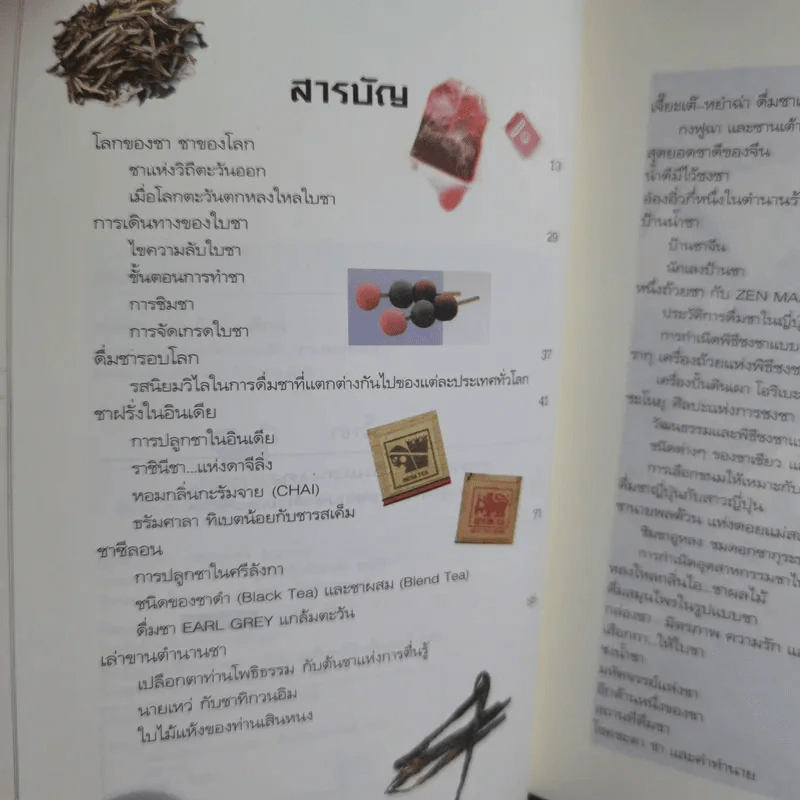 สารบัญ
โลกของชา ชาของโลก
ชาแห่งวิถีตะวันออก
13
เมื่อโลกตะวันตกหลงใหลใบชา
การเดินทางของใบชา
29
ไขความลับใบชา
ขั้นตอนการทำชา
การชิมชา
การจัดเกรดใบชา
ดื่มชารอบโลก
37
รสนิยมวิไลในการดื่มชาที่แตกต่างกันไปของแต่ละประเทศทั่วโลก
ชาฝรั่งในอินเดีย
41
การปลูกชาในอินเดีย
ราชินีชา...แห่งดาจีลิ่ง
หอมกลิ่นกะรัมจาย (CHAI)
ธรัมศาลา ทิเบตน้อยกับชารสเค็ม
ชาซีลอน
71
การปลูกชาในศรีลังกา
ชนิดของชาดำ (Black Tea) และชาผสม (Blend Tea)
ดื่มชา EARL GREY แกล้มตะวัน
เล่าขานตำนานชา
เปลือกตาท่านโพธิธรรม กับต้นชาแห่งการตื่นรู้
นายเหว่ กับชาทิกวนอิม
ใบไม้แห้งของท่านเสินหนง
กงฟูฉา และชานเต้า
สุดยอดชาดีของจีน
น้ำดีมีไว้ชงชา
ป้านน้ำชา
ป้านชาจีน
นักเลงป้านชา
หนึ่งถ้วยชา กับ ZEN
ประวัติการดื่มชาในญี่ปุ่น
การกำเนิดพิธีชงชาแบบ
รากุ เครื่องถ้วยแห่งพิธีชงชา
เครื่องปั้นดินเผา โอริเบะ
ชะโนยุ ศิลปะแห่งการชงชา
วัฒนธรรมและพิธีชงชา
ชนิดต่างๆ ของชาเขียว
การเลือกขนมให้เหมาะกับ
ดื่มชาญี่ปุ่นกับสาวญี่ปุ่น
ชานายพลด้วน แห่งดอยแม่
การกำเนิดอุตสาหกรรมชา
หลงใหลกลิ่นไอ...ชาผลไม้
ดื่มสมุนไพรในรูปแบบชา
กล่องชา มิตรภาพ ความรัก
เลือกกา...ให้ใบชา
ชงน้ำชา
มหัศจรรย์แห่งชา
อีกด้านหนึ่งของชา
สถานที่ดื่มชา
โชคชะตา ชา และคำทำนาย